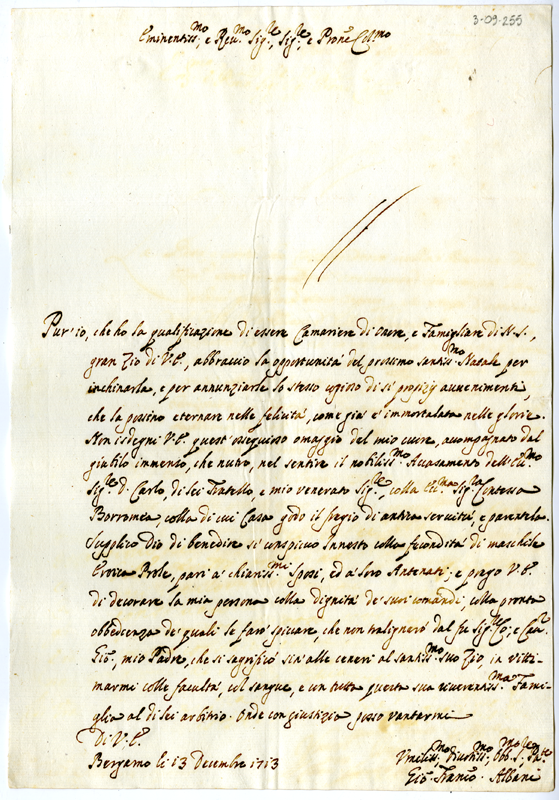 3-09-255
Eminentiss:mo e Rev:mo Sig:re, Sig:re, e Prone Col:mo
Pur'io, che ho la qualificazione di essere Camariere di onore, e Famigliare di N.S.,
gran Zio di V.E., abbraccio la opportunità del prossimo Santiss:mo Natale per
inchinarla, e per annunziarle lo stesso copioso di sì propizij avvenimenti,
che la possino eternare nelle felicità, come già è immortalata nelle glorie.
Non isdegni V.E. quest'ossequioso omaggio del mio cuore, accompagnato dal
giubilo immenso, che nutro, nel sentire il nobiliss:mo Accasamento dell'Ill:mo
Sig:re D. Carlo, di Lei Fratello, e mio venerato Sig:re, colla Sig:ra Contessa
Borromea, colla di cui Casa godo il fregio di antica servitù, e parentela.
Supplico Dio di benedire sì conspicuo Innesto colla fecondità di maschile
Eroica Prole, pari a' chiariss:mi Sposi, ed a' loro Antenati; e prego V.E.
di decorare la mia persona colla dignità de' suoi comandi, colla pronta
obbedienza de' quali le farò spiccare, che non tralignerò dal fu Sig:r Co:
Gio:, mio Padre, che si sagrificò sin'alle ceneri al Santiss:mo suo Zio, in vitti-
marmi colle facultà, col sangue, e con tutta questa sua riverentiss:ma Fami-
glia al di lei arbitrio. Onde con giustizia posso vantarmi
Di V.E.
Bergamo li 13 Decembre 1713
Umiliss:mo Divotiss:mo Obb:mo
Gio: Franco: Albani